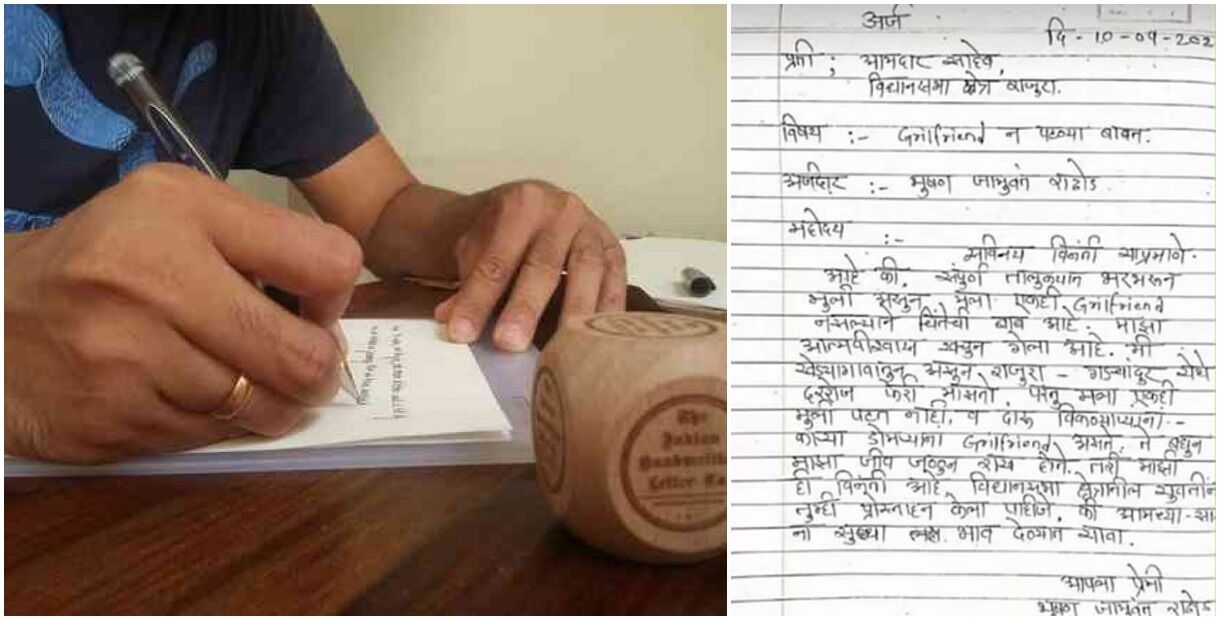 The
Indian
Handwritten
Letter Co.
अर्ज
दि - 10 - 09 - 202
प्रती ; आमदार साहेब,
विधानसभा क्षेत्र राजुरा.
विषय :- Grilfriend न पटण्या बाबत.
अर्जदार :- भुषण जामुवंत राठोड
महोदय :-
सविनय विनंती याप्रमाणे.
आहे की, संपुर्ण तालुक्यात भरभरून
मुली असुन, मुला एकही Grilfriend
नसल्याने चिंतेची बाब आहे. माझा
आत्मवीश्वास खचुन गेला आहे. मी
खेड्यागावातुन असुन राजुरा - गडचांदुर येथे
दररोज फेरी मारतो, परंतु मला एकही
मुली पटत नाही, व दारू विकणाऱ्याना -
काऱ्या डोमऱ्याना Grilfriend असते, ते बघुन
माझा जीव जळुन राख होते. तरी माझी
ही विनंती आहे विधानसभा क्षेत्रातील युवतींन
तुम्ही प्रोत्साहन केला पाहीजे, की आमच्या - सा
ना सुध्दा भाव देण्यात यावा.
आपला प्रेमी
भुषण जामुवंत राठोड